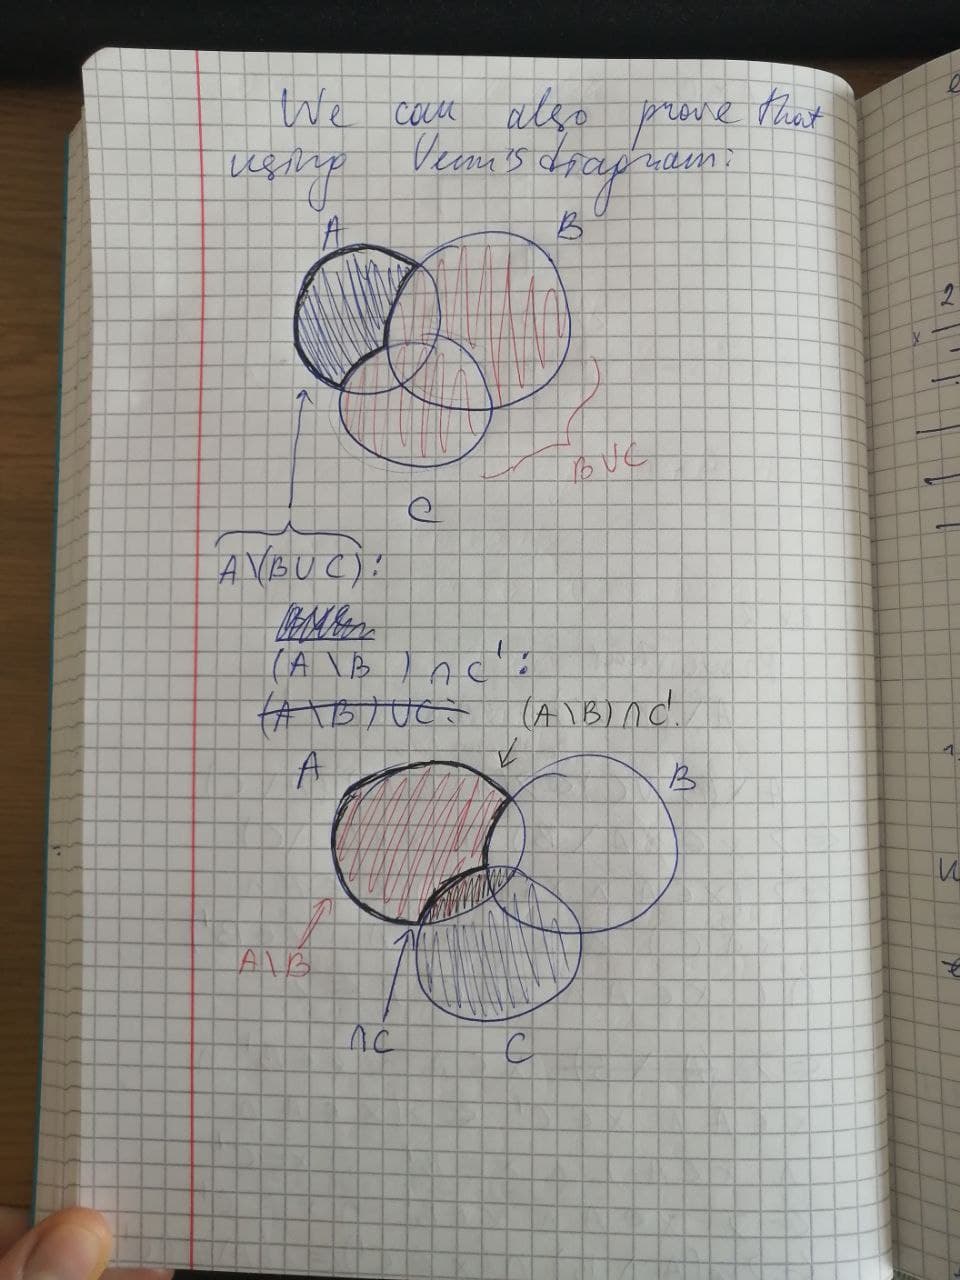 We can also prove that
using Venn's diagram:
A
B
B ∪ C
C
A\(B∪C):
(A \ B ) ∩ C':
(A \ B ) ∪ C:
(A \ B) ∩ C'.
A
B
A\B
∩C
C
2
x